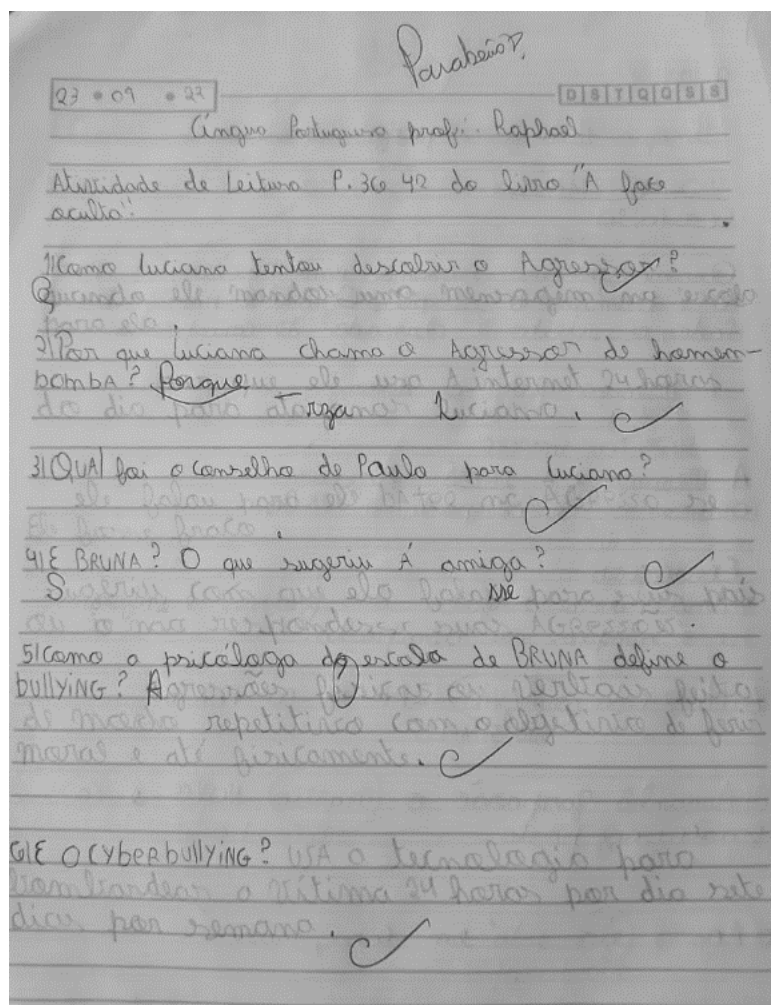 Parabéns!
23 09 22 D S T Q Q S S
Língua Portuguesa prof: Raphael
Atividade de Leitura P. 36 42 do livro "A face
oculta".
1) Como Luciana tentou descobrir o Agressor?
Quando ele mandar uma mensagem na escola
para ela.
2) Por que Luciana chama o Agressor de homem-
bomba? Porque ele usa A internet 24 horas
do dia para atorzanar Luciana.
3) QUAl foi o conselho de Paulo para Luciana?
ele falou para ele bater no AGResso se
Ele fosse fraco.
4) E BRUNA? O que sugeriu Á amiga?
Sugeriu com que ela falasse para seus pais
ou o não responder suas AGRessões.
5) Como a psicóloga da escola de BRUNA define o
bullYiNG? Agressões físicas ou verbais feita
de modo repetitivo com o objetivo de ferir
moral e até fisicamente.
6) E O CYbeRbullYiNG? USA a tecnologia para
bombardear a vítima 24 horas por dia sete
dias por semana.